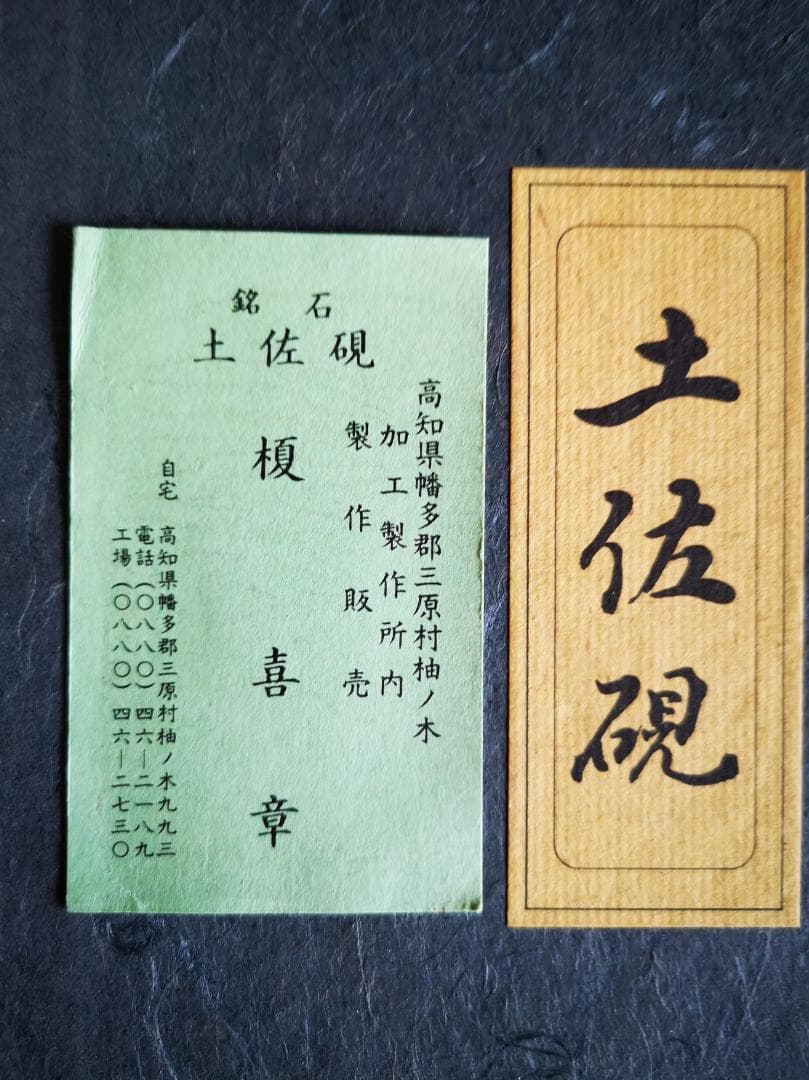 銘石
土佐硯
高知県幡多郡三原村柚ノ木
加工製作所内
製作販売
榎喜章
自宅 高知県幡多郡三原村柚ノ木九九三
電話(〇八八〇)四六―二一八九
工場(〇八八〇)四六―二七三〇
土佐硯